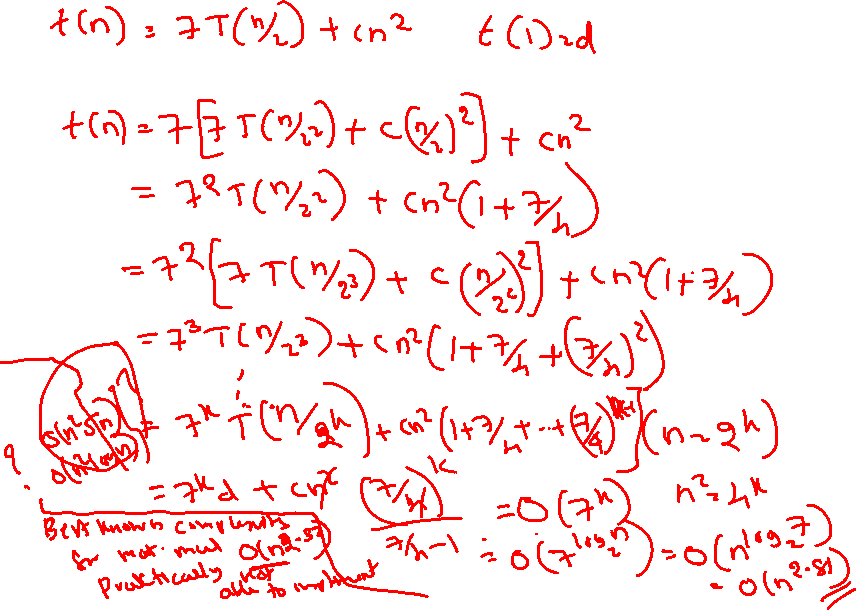 t(n) = 7T(n/2) + cn² t(1)=d
t(n) = 7[7T(n/2²) + c(n/2)²] + cn²
= 7²T(n/2²) + cn²(1+7/4)
= 7²[7T(n/2³) + c(n/2²)²] + cn²(1+7/4)
= 7³T(n/2³) + cn²(1+7/4+(7/4)²)
= 7ᵏT(n/2ᵏ) + cn²(1+7/4+...+(7/4)ᵏ⁻¹) (n=2ᵏ)
= 7ᵏd + cn² (7/4)ᵏ / 7/4-1 = O(7ᵏ) n²=4ᵏ
= O(7^log₂n) = O(n^log₂7)
= O(n^2.81)
?
Best known complexity
for mat. mul O(n^2.52)
Practically not
able to implement